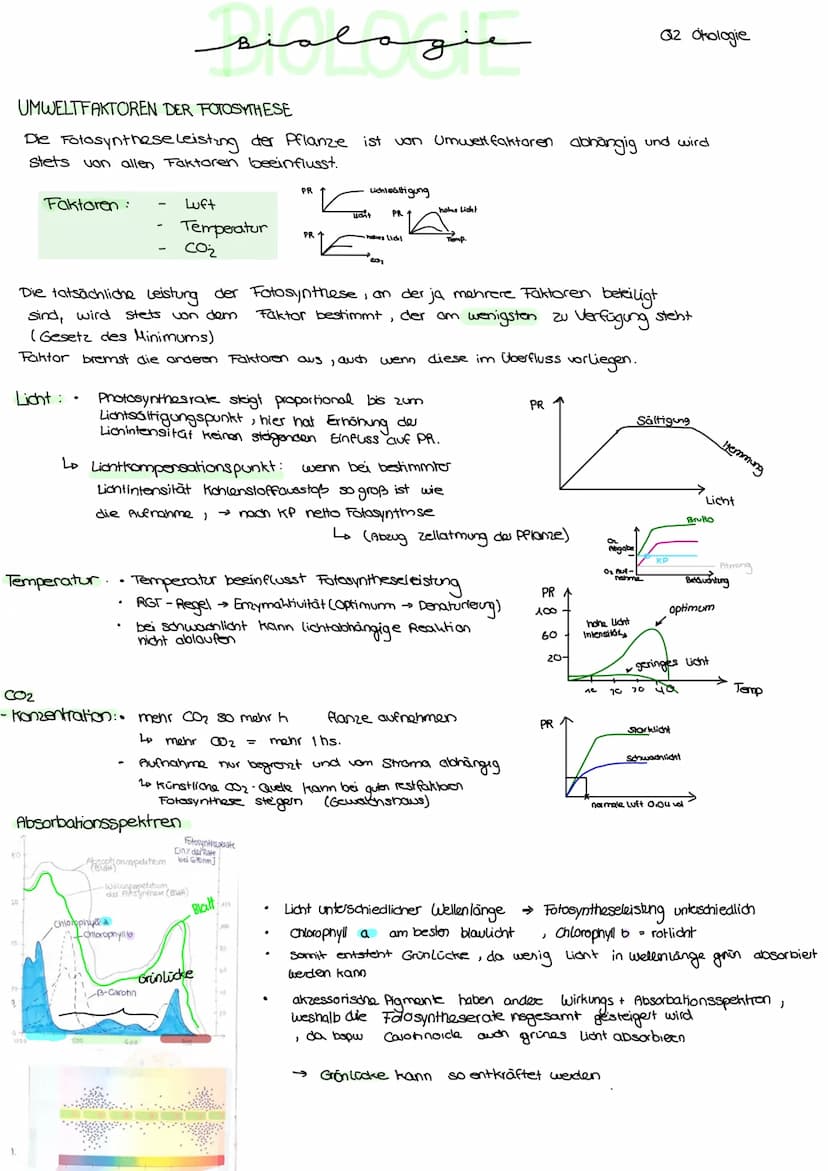 BIOLOGIE
Biologie
Q2 Ökologie
UMWELTFAKTOREN DER FOTOSYTHESE
Die Fotosyntheseleistung der Pflanze ist von Umweltfaktoren abhängig und wird
stets von allen Faktoren beeinflusst.
Faktoren: - Luft
- Temperatur
- CO2
PR Lichtsättigung
Licht
PR hohes Licht
Temp.
PR hohes Licht
CO2
Die tatsächliche Leistung der Fotosynthese, an der ja mehrere Faktoren beteiligt
sind, wird stets von dem Faktor bestimmt, der am wenigsten zu Verfügung steht
(Gesetz des Minimums)
Faktor bremst die anderen Faktoren aus, auch wenn diese im Überfluss vorliegen.
Licht: • Photosyntheserate steigt proportional bis zum
Lichtsättigungspunkt, hier hat Erhöhung der
Lichintensität keinen steigenden Einfluss auf PR.
↳ Lichtkompensationspunkt: wenn bei bestimmter
Lichtintensität Kohlenstoffausstoß so groß ist wie
die Aufnahme, → nach KP netto Fotosynthse
↳ (Abzug Zellatmung der Pflanze)
PR
Sättigung
Hemmung
Licht
Brutto
O2 Abgabe
KP
O2 Auf-
nahme
Atmung
Beleuchtung
Temperatur • Temperatur beeinflusst Fotosyntheseleistung
• RGT-Regel → Enzymaktivität (Optimum → Denaturierung)
• bei Schwachlicht kann lichtabhängige Reaktion
nicht ablaufen
PR
100
60
20
hohe Licht
Intensität
optimum
geringes Licht
Temp
CO2
- Konzentration: • mehr CO2 so mehr h flanze aufnehmen
↳ mehr CO2 = mehr
- Aufnahme nur begrenzt und vom Stroma abhängig
↳ künstliche CO2-Quelle kann bei guten restfaktoren
Fotosynthese steigern
PR
Starklicht
Schwachlicht
normale Luft 0,04 vol
Absorbationsspektren
Fotosyntheserate
Absorptionsspektrum
(Blatt)
Wirkungsspektrum
der Fotosynthese (Blatt)
Blatt
Chlorophyll a
Chlorophyll b
Grünlücke
β-Carotin
• Licht unterschiedlicher Wellenlänge → Fotosyntheseleistung unterschiedlich
• Chlorophyll a am besten blaulicht, Chlorophyll b = rotlicht
• somit entsteht Grünlücke, da wenig Licht in wellenlänge grün absorbiert
werden kann
• akzessorische Pigmente haben ander Wirkungs + Absorbationsspektren,
weshalb die Fotosyntheserate nsgesamt gesteigert wird
, da bspw Carotinoide auch grünes Licht absorbieren
→ Grünlücke kann so entkräftet werden
1.